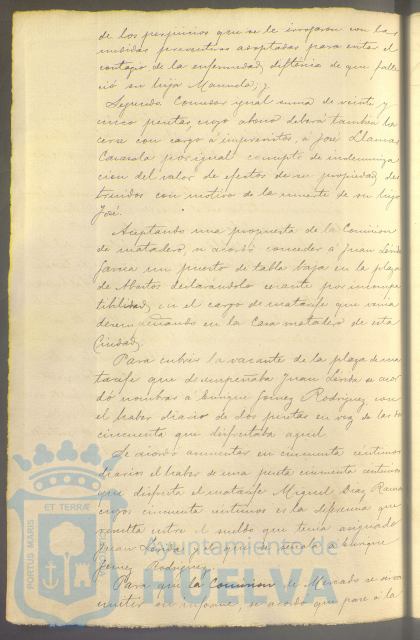 de los perjuicios que se le irrogaron con las
medidas preventivas adoptadas para evitar el
contagio de la enfermedad difteria de que falle
ció su hija Manuela; y
Segundo. Conceder igual suma de veinte y
cinco pesetas, cuyo abono deberá también ha
cerse con cargo á imprevistos, á José Llamas
por igual concepto de indemniza
cion del valor de efectos de su propiedad des
truidos con motivo de la muerte de su hijo
José.
Aceptando una propuesta de la Comision
de matadero, se acordó conceder á Juan
Garcia un puesto de tabla baja en la plaza
de Abastos declarándolo cesante por incompa
tibilidad en el cargo de matarife que venia
desempeñando en la Casa matadero de esta
Ciudad.
Para cubrir la vacante de la plaza de ma
tarife que desempeñaba Juan se acor
dó nombrar á Enrique Gomez Rodriguez con
el haber diario de dos pesetas en vez de las dos
cincuenta que disfrutaba aquel.
Se acordó aumentar en cincuenta centimos
diarios el haber de una peseta cincuenta centimos
que disfruta el matarife Miguel Diaz
cuyos cincuenta centimos es la diferencia que
resulta entre el sueldo que tenia asignado
Juan y el que se señala á Enrique
Gomez Rodriguez.
Para que la Comision de Mercado se sirva
emitir su informe, se acordó que pase á la
PORTUS MARIS ET TERRÆ
Ayuntamiento de
HUELVA